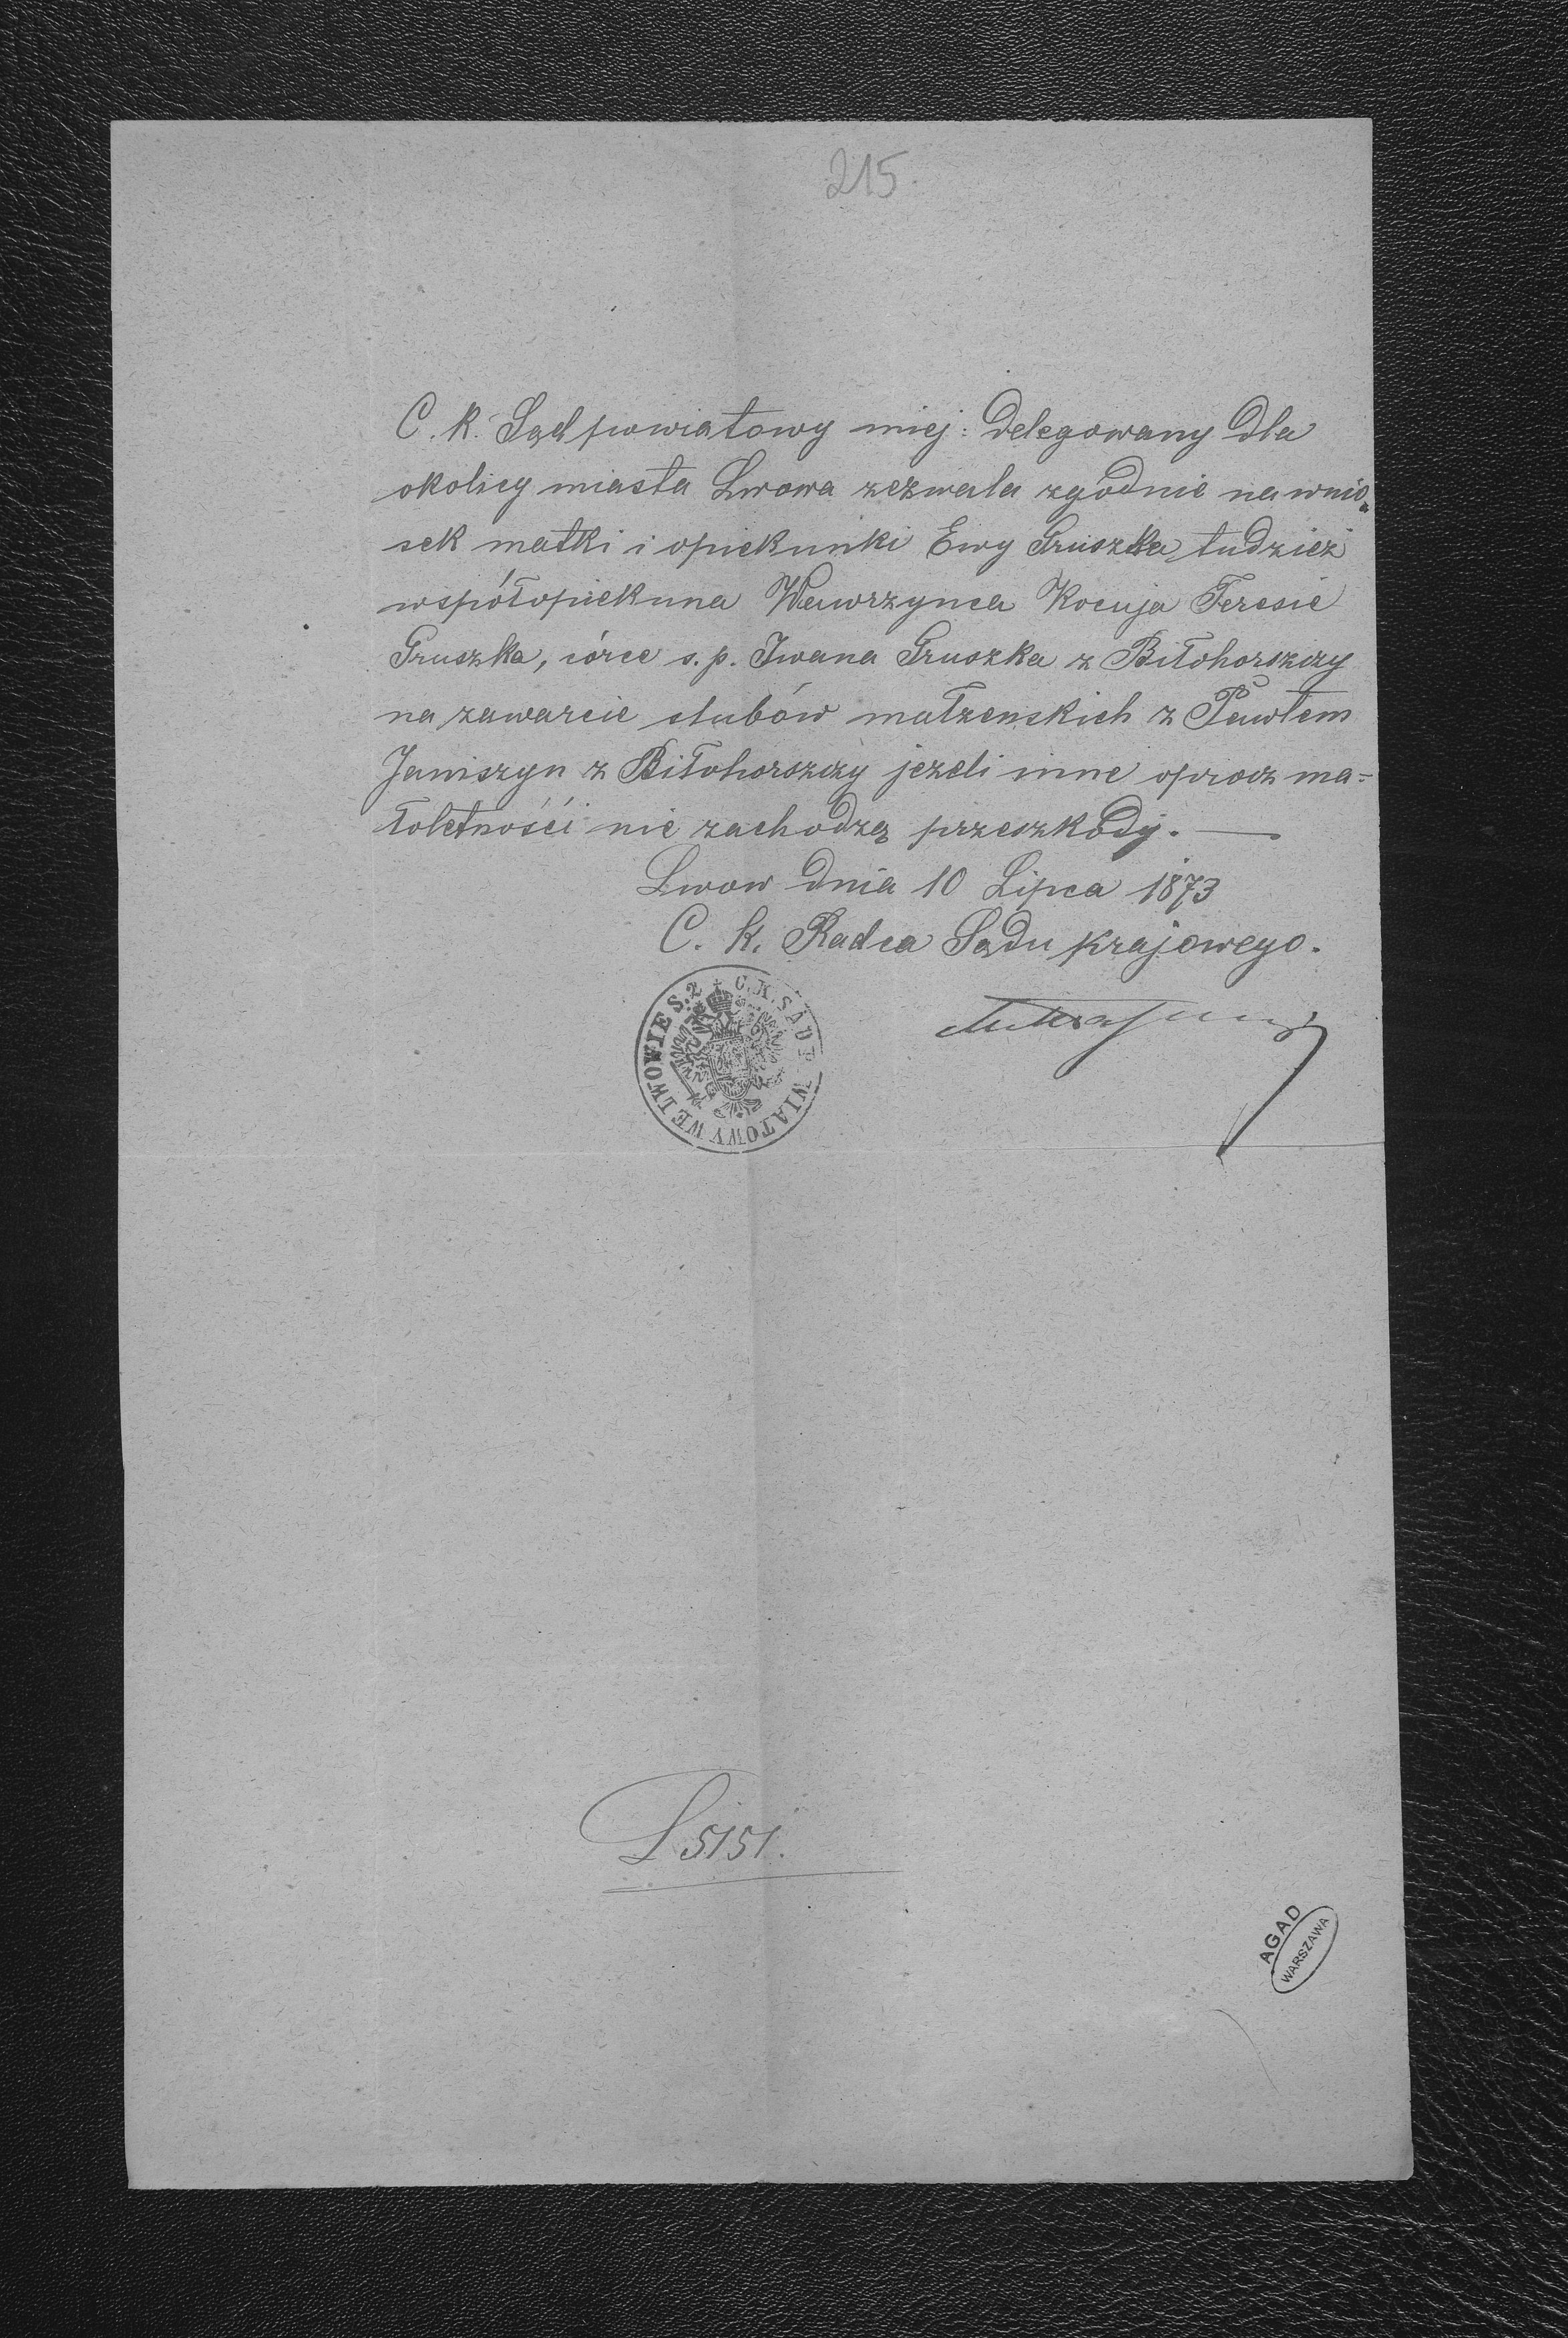 215.
C. k. Sąd powiatowy miej: delegowany dla
okolicy miasta Lwowa zezwala zgodnie na wnio-
sek matki i opiekunki Ewy Gruszka, tudzież
współopiekuna Wawrzynca Kocuja Teresie
Gruszka, córce s. p. Iwana Gruszka z Biłohorszczy
na zawarcie slubów małzenskich z Pawłem
Janiszyn z Biłohorszczy jezeli inne oprocz ma=
łoletnośći nie zachodzą przeszkody. —
Lwow dnia 10 Lipca 1873
C. k. Radca Sądu krajowego.
C. K. SĄD P WIATOWY WE LWOWIE S. 2
L 5151.
AGAD
WARSZAWA